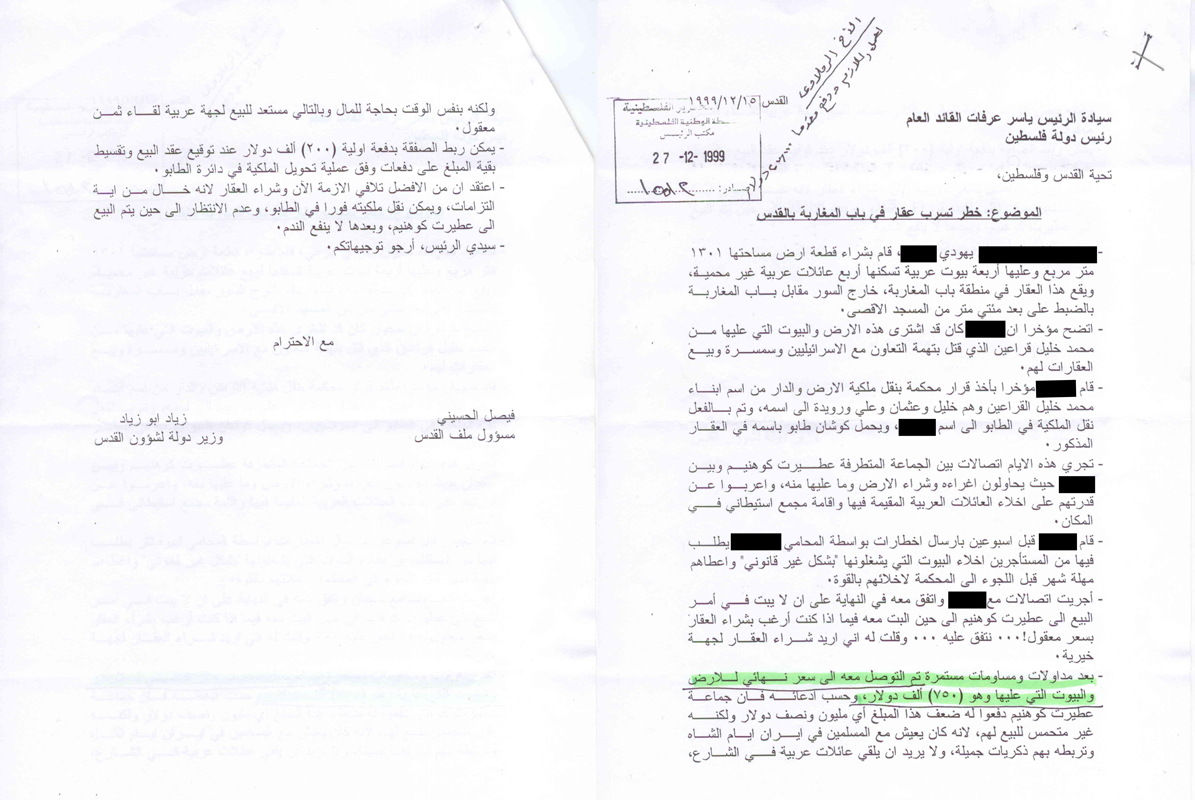 الاخ الرجاوي
القدس ١٩٩٩/١٢/١٥
الفلسطينية
السلطة الوطنية الفلسطينية
مكتب الرئيس
27 -12- 1999
صادر:
سيادة الرئيس ياسر عرفات القائد العام
رئيس دولة فلسطين
تحية القدس وفلسطين،
الموضوع: خطر تسرب عقار في باب المغاربة بالقدس
- يهودي ، قام بشراء قطعة ارض مساحتها ١٣٠١
متر مربع وعليها أربعة بيوت عربية تسكنها أربع عائلات عربية غير محمية،
ويقع هذا العقار في منطقة باب المغاربة، خارج السور مقابل باب المغاربة
بالضبط على بعد مئتي متر من المسجد الاقصى.
- اتضح مؤخرا ان كان قد اشترى هذه الارض والبيوت التي عليها من
محمد خليل قراعين الذي قتل بتهمة التعاون مع الاسرائيليين وسمسرة وبيع
العقارات لهم.
- قام مؤخرا بأخذ قرار محكمة بنقل ملكية الارض والدار من اسم ابناء
محمد خليل القراعين وهم خليل وعثمان وعلي ورويدة الى اسمه، وتم بالفعل
نقل الملكية في الطابو الى اسم ، ويحمل كوشان طابو باسمه في العقار
المذكور.
- تجري هذه الايام اتصالات بين الجماعة المتطرفة عطيرت كوهنيم وبين
حيث يحاولون اغراءه وشراء الارض وما عليها منه، واعربوا عن
قدرتهم على اخلاء العائلات العربية المقيمة فيها واقامة مجمع استيطاني في
المكان.
- قام قبل اسبوعين بارسال اخطارات بواسطة المحامي يطلب
فيها من المستأجرين اخلاء البيوت التي يشغلونها "بشكل غير قانوني" واعطاهم
مهلة شهر قبل اللجوء الى المحكمة لاخلائهم بالقوة.
- أجريت اتصالات مع واتفق معه في النهاية على ان لا يبت في أمر
البيع الى عطيرت كوهنيم الى حين البت معه فيما اذا كنت أرغب بشراء العقار
بسعر معقول!... نتفق عليه ... وقلت له اني اريد شراء العقار لجهة
خيرية.
- بعد مداولات ومساومات مستمرة تم التوصل معه الى سعر نهائي للارض
والبيوت التي عليها وهو (٧٥٠) ألف دولار، وحسب ادعائه فان جماعة
عطيرت كوهنيم دفعوا له ضعف هذا المبلغ أي مليون ونصف دولار ولكنه
غير متحمس للبيع لهم، لانه كان يعيش مع المسلمين في ايران ايام الشاه
وتربطه بهم ذكريات جميلة، ولا يريد ان يلقي عائلات عربية في الشارع،
ولكنه بنفس الوقت بحاجة للمال وبالتالي مستعد للبيع لجهة عربية لقاء ثمن
معقول.
- يمكن ربط الصفقة بدفعة اولية (٢٠٠) ألف دولار عند توقيع عقد البيع وتقسيط
بقية المبلغ على دفعات وفق عملية تحويل الملكية في دائرة الطابو.
- اعتقد ان من الافضل تلافي الازمة الآن وشراء العقار لانه خال من اية
التزامات، ويمكن نقل ملكيته فورا في الطابو، وعدم الانتظار الى حين يتم البيع
الى عطيرت كوهنيم، وبعدها لا ينفع الندم.
- سيدي الرئيس، أرجو توجيهاتكم.
مع الاحترام
فيصل الحسيني
مسؤول ملف القدس
زياد ابو زياد
وزير دولة لشؤون القدس